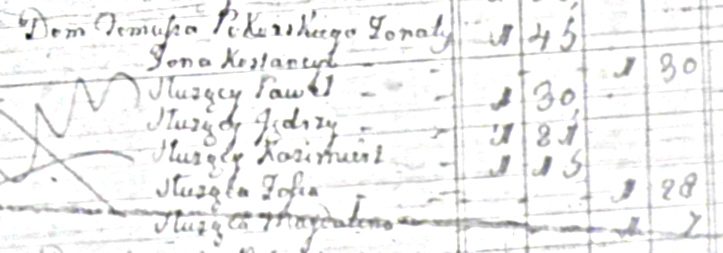 Dom Tomusza Pekarskiego Zonaty 1 45
Zona Kostancya - - 1 30
Służący Paweł - - 1 30
Służący Jędrzy - - 1 21
Służący Kazimierz - 1 15
Służąca Zofia - - 1 28
Służąca Magdalena 1 7